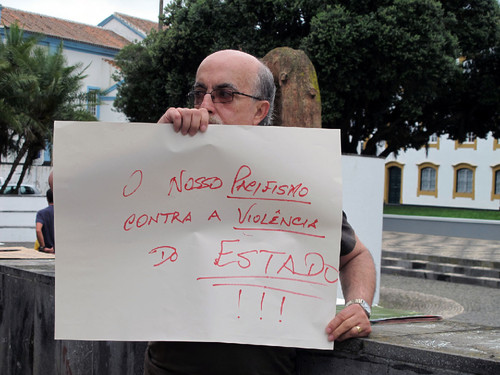 O NOSSO PACIFISMO
CONTRA A VIOLÊNCIA
DO ESTADO
!!!